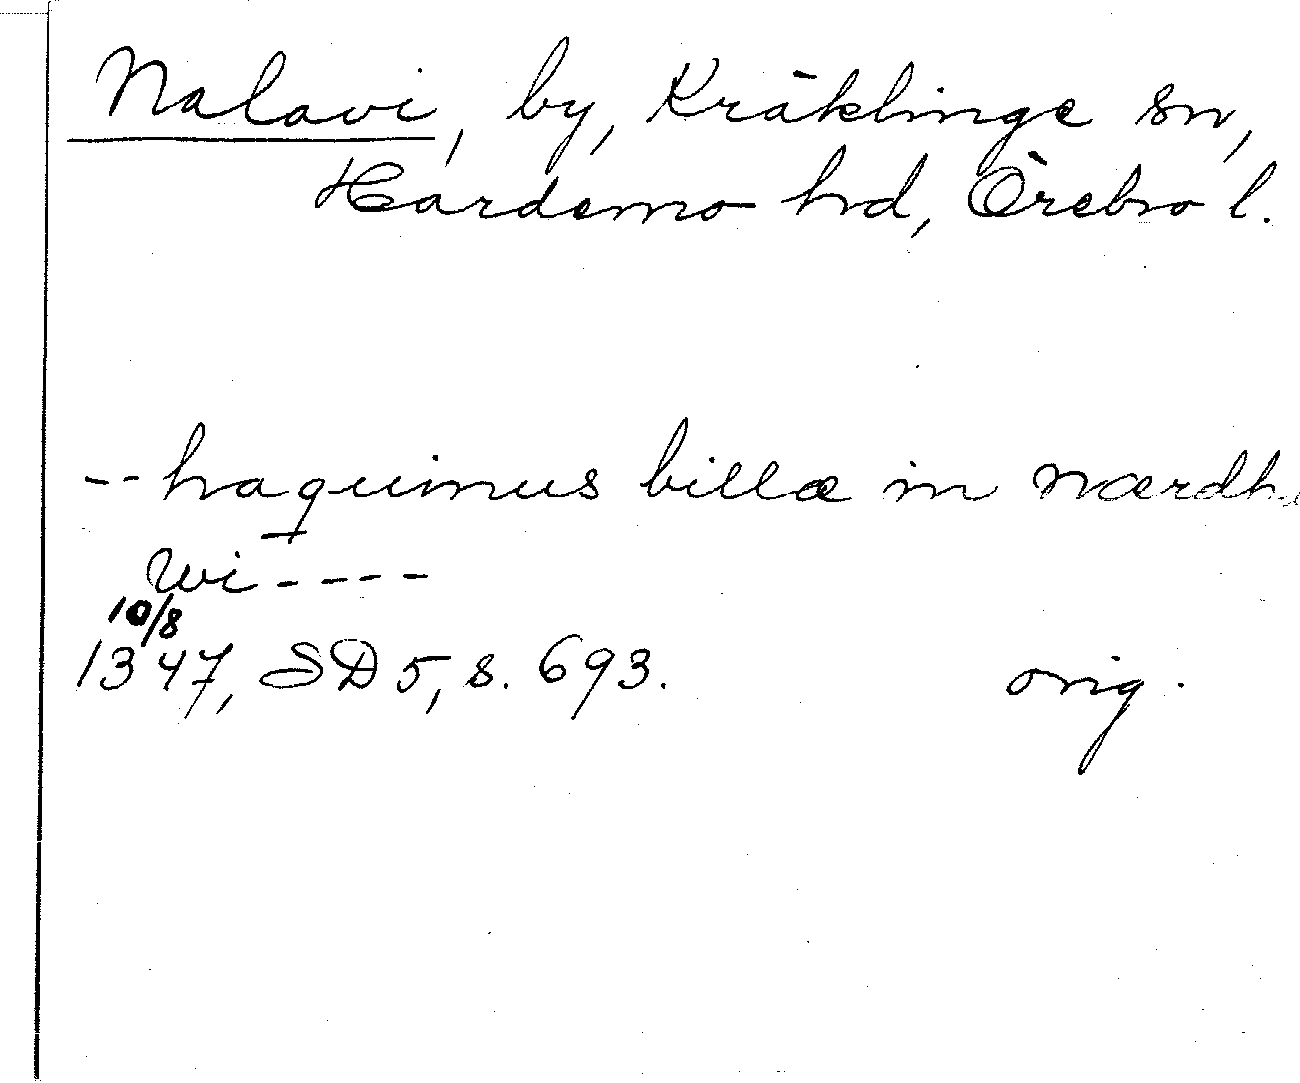 Nalavi, by, Kräklinge sn,
Hardemo hd, Örebro l.
-- haquinus billæ in nærdh
wi ----
10/8
1347, SD 5, s. 693. orig.